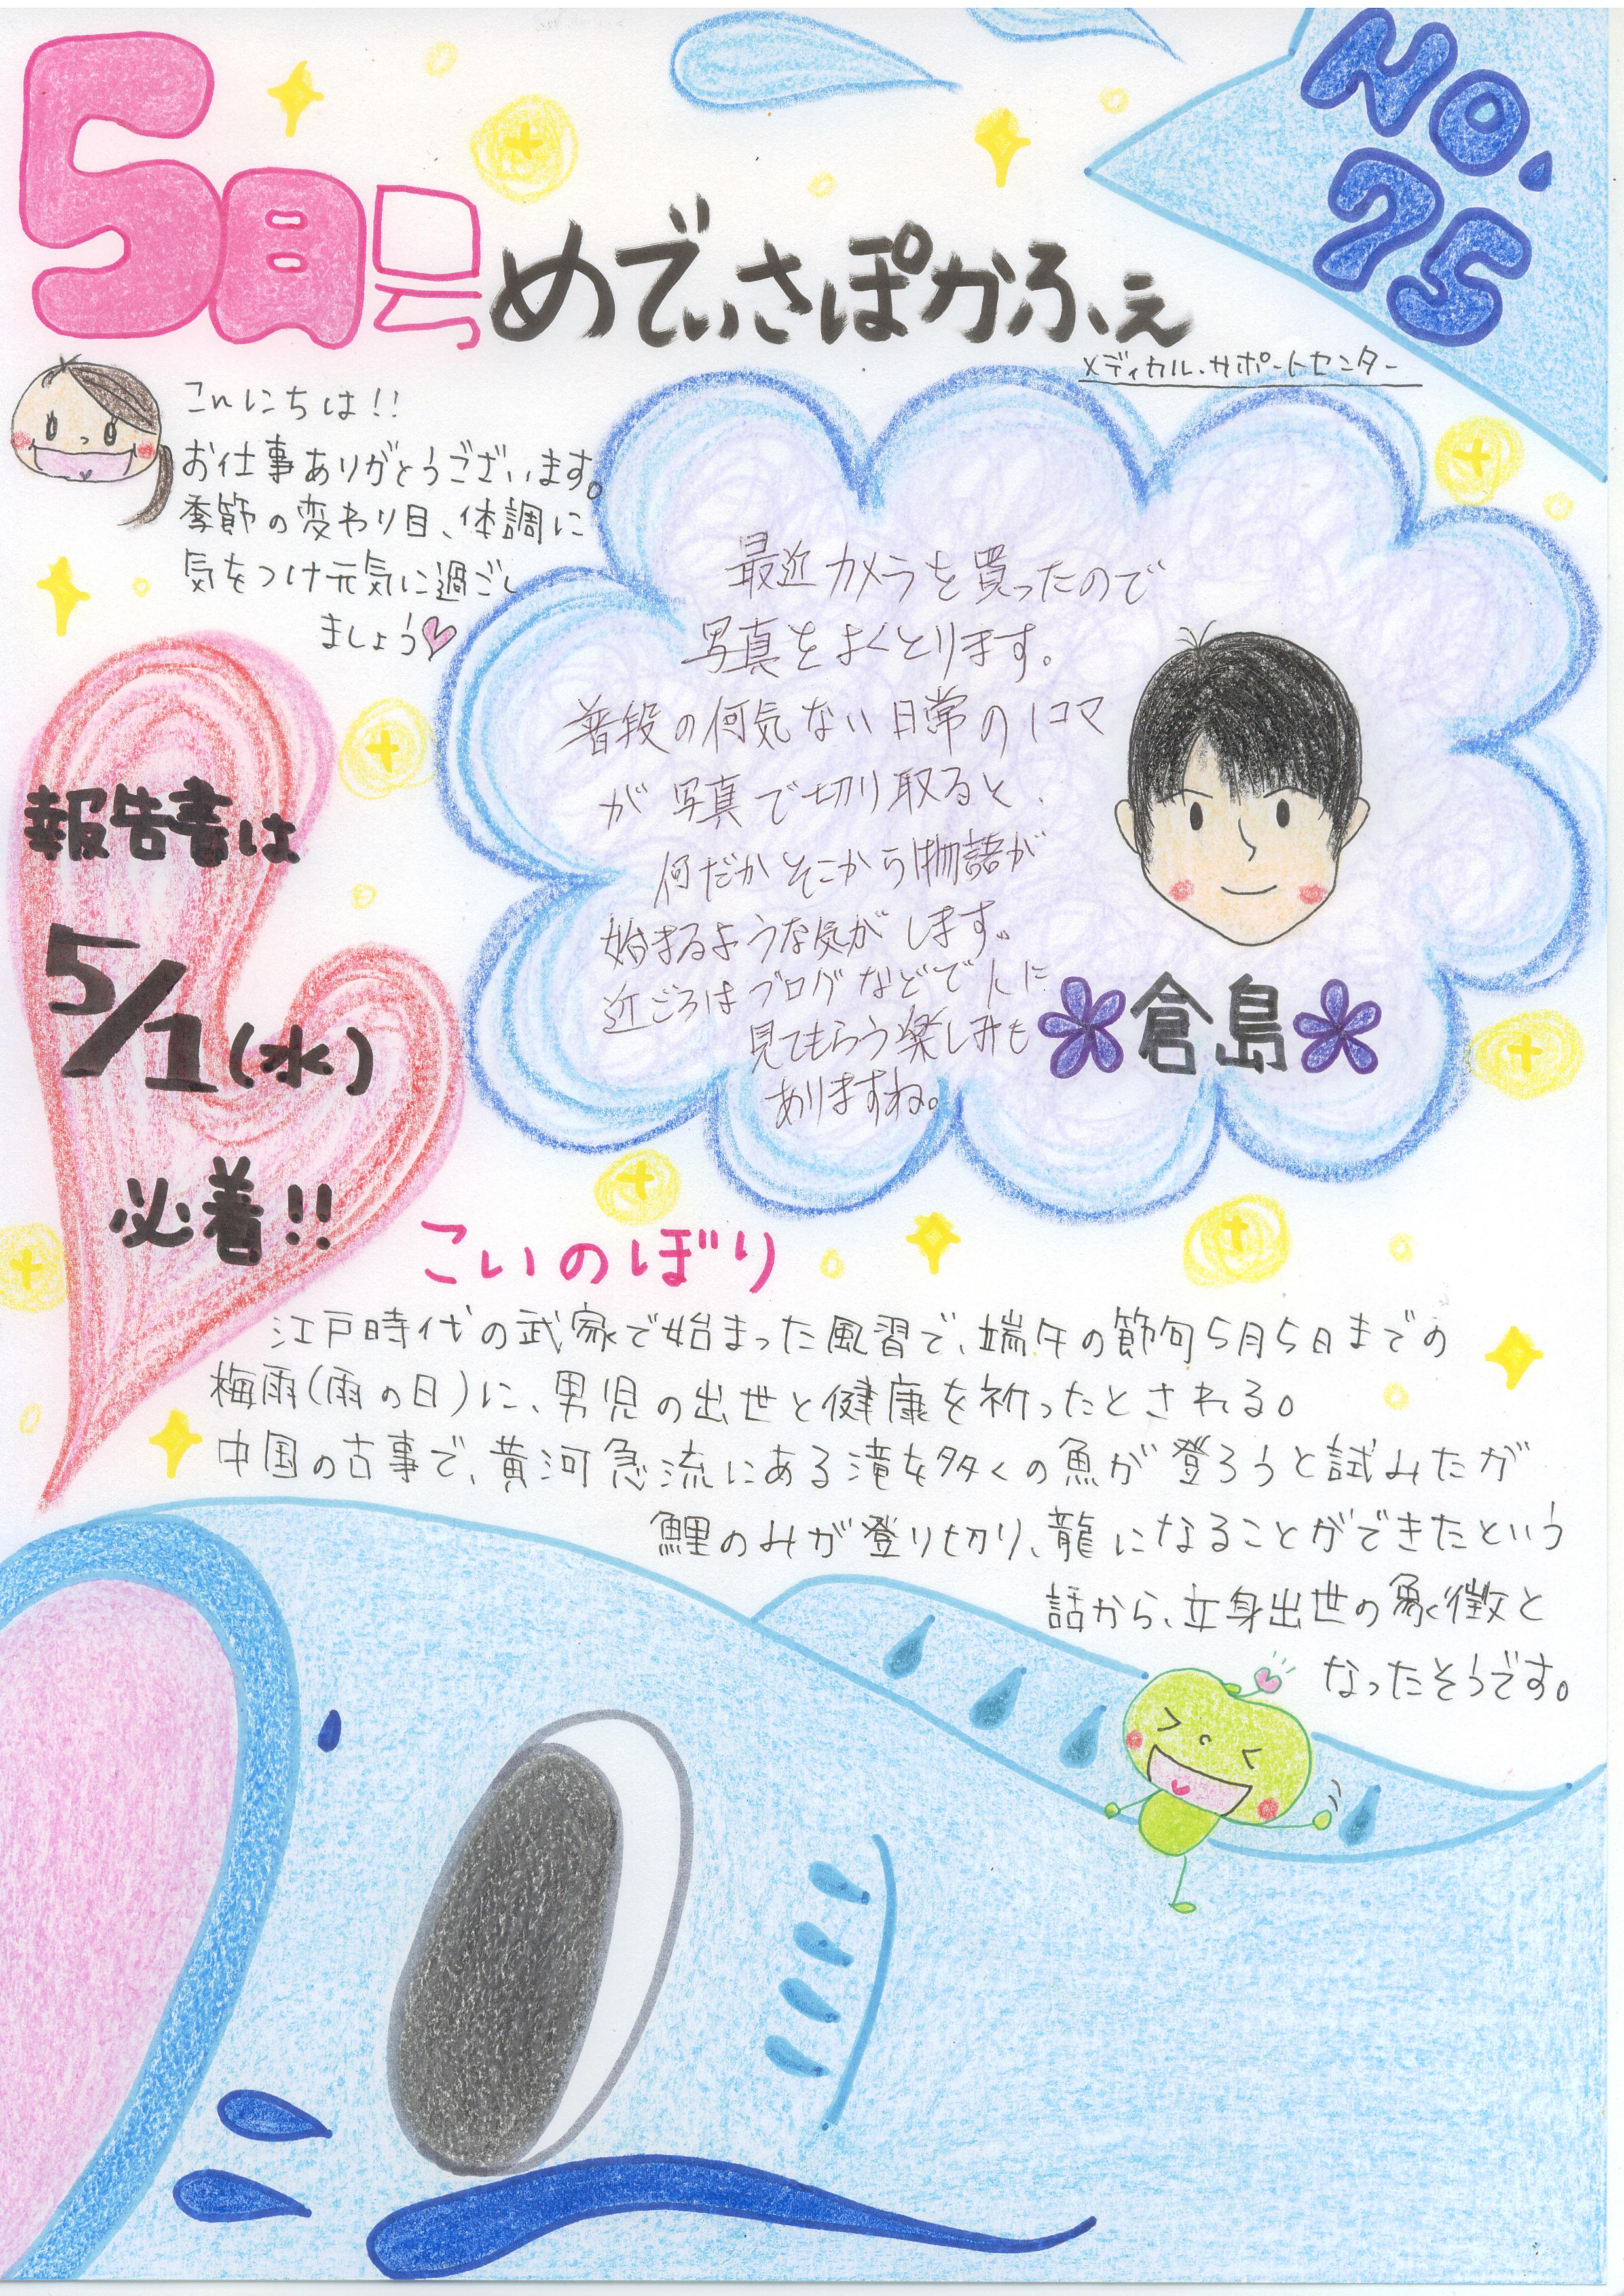 5月号
めでぃさぽかふぇ
NO.75
メディカル・サポートセンター
こんにちは!!
お仕事ありがとうございます。
季節の変わり目、体調に
気をつけ元気に過ごし
ましょう
最近カメラを買ったので
写真をよくとります。
普段の何気ない日常の1コマ
が写真で切り取ると、
何だかそこから物語が
始まるような気がします。
近ごろはブログなどで人に
見てもらう楽しみも
ありますね。
倉島
報告書は
5/1(水)
必着!!
こいのぼり
江戸時代の武家で始まった風習で、端午の節句5月5日までの
梅雨(雨の日)に、男児の出世と健康を祈ったとされる。
中国の古事で、黄河急流にある滝を多くの魚が登ろうと試みたが
鯉のみが登り切り、龍になることができたという
話から、立身出世の象徴と
なったそうです。